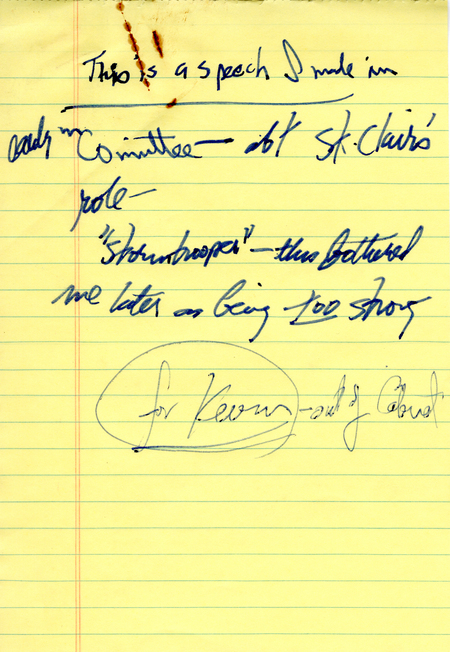 This is a speech I made in
early in Committee — abt St. Clair's
role —
"Stormtrooper" — this bothered
me later as being too strong
for Kevin — out of Cabinet